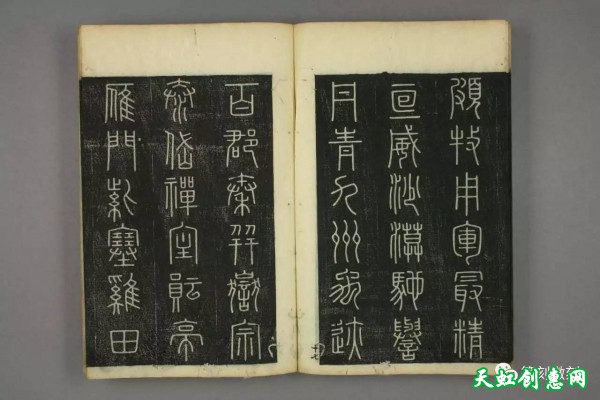 頗牧用軍最精
宣威沙漠馳譽
丹青九州禹迹
百郡秦并嶽宗
泰岱禪主云亭
雁門紫塞雞田
天虹创意网